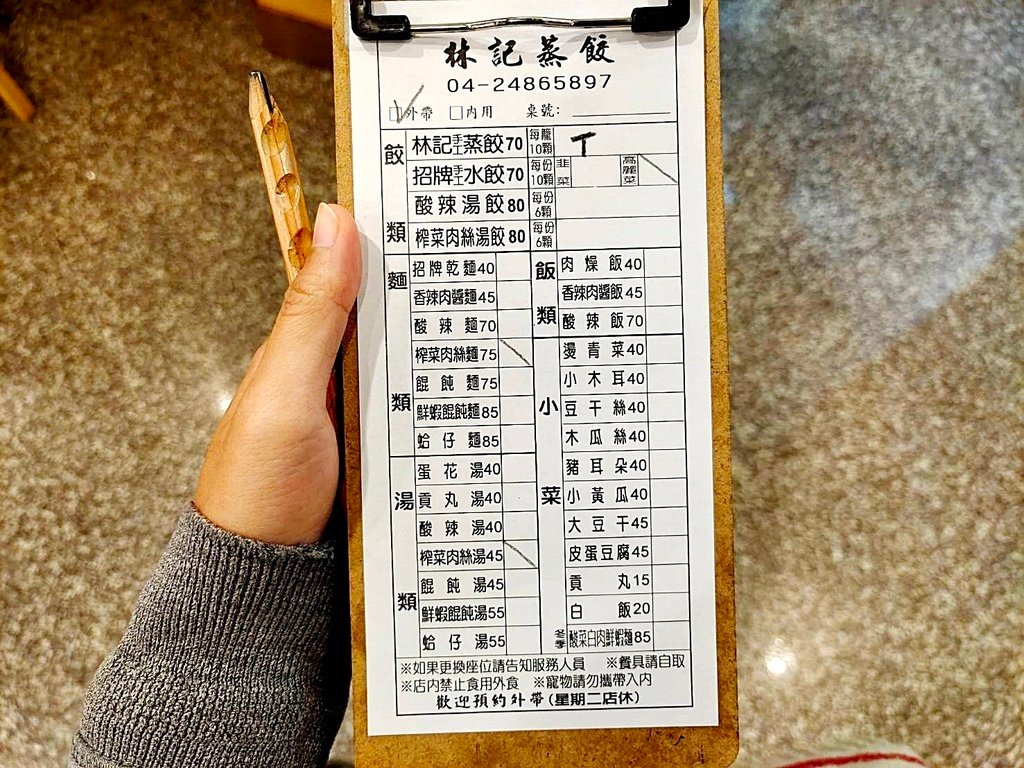 林記蒸餃
04-24865897
□外帶 □內用 桌號：
餃類
林記手工蒸餃70 每籠10顆
招牌手工水餃70 每份10顆 韭菜 高麗菜
酸辣湯餃80 每份6顆
榨菜肉絲湯餃80 每份6顆
麵類
招牌乾麵40
香辣肉醬麵45
酸辣麵70
榨菜肉絲麵75
餛飩麵75
鮮蝦餛飩麵85
蛤仔麵85
湯類
蛋花湯40
貢丸湯40
酸辣湯40
榨菜肉絲湯45
餛飩湯45
鮮蝦餛飩湯55
蛤仔湯55
飯類
肉燥飯40
香辣肉醬飯45
酸辣飯70
小菜
燙青菜40
小木耳40
豆干絲40
木瓜絲40
豬耳朵40
小黃瓜40
大豆干45
皮蛋豆腐45
貢丸15
白飯20
冬季 酸菜白肉鮮蝦麵85
※如果更換座位請告知服務人員 ※餐具請自取
※店內禁止食用外食 ※寵物請勿攜帶入內
歡迎預約外帶(星期二店休)